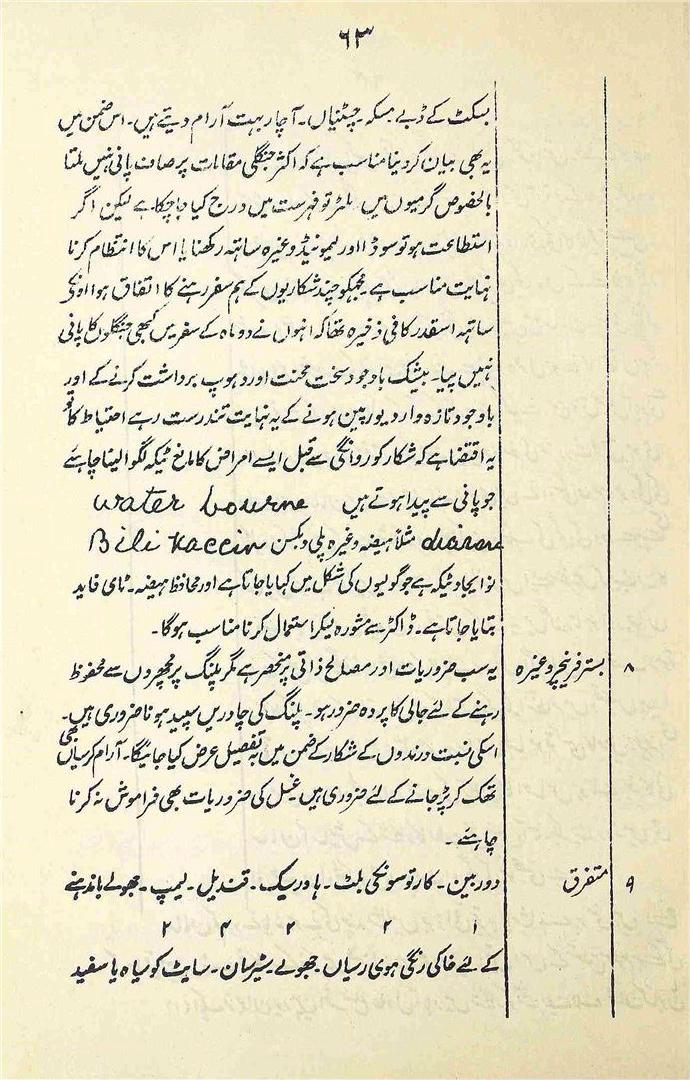 ۶۳
بسکٹ کے ڈبے مسکہ چٹنیاں۔ آچار بہت آرام دیتے ہیں۔ اس ضمن میں
یہ بھی بیان کردینا مناسب ہے کہ اکثر جنگلی مقامات پر صاف پانی نہیں ملتا
بالخصوص گرمیوں میں فلٹر تو فہرست میں درج کیا جاچکا ہے لیکن اگر
استطاعت ہو تو سوڈا اور لیمونیڈ وغیرہ ساتہہ رکھنا یا اس کا انتظام کرنا
نہایت مناسب ہے۔ مجھکو چند شکاریوں کے ہم سفر رہنے کا اتفاق ہوا اونکی
ساتہہ اسقدر کافی ذخیرہ تھا کہ انہوں نے دو ماہ کے سفر میں کبھی جنگلوں کا پانی
نہیں پیا۔ بیشک باوجود سخت محنت اور دہوپ برداشت کرنے کے اور
باوجود تازہ وارد یورپین ہونے کے یہ نہایت تندرست رہے احتیاط کا تو
یہ اقتضا ہے کہ شکار کو روانگی سے قبل ایسے امراض کا مانع ٹیکہ لگوالینا چاہئے
جو پانی سے پیدا ہوتے ہیں water bourne
diseases مثلاً ہیضہ وغیرہ بلی ویکسن Bili Vaccin
نو ایجاد ٹیکہ ہے جو گولیوں کی شکل میں کہایا جاتا ہے اور محافظ ہیضہ۔ ٹای فاید
بتایا جاتا ہے۔ ڈاکٹر سے مشورہ لیکر استعمال کرنا مناسب ہوگا۔
۸ بستر فرنیچر وغیرہ یہ سب ضروریات اور مصالح ذاتی پر منحصر ہے مگر پلنگ پر مچھروں سے محفوظ
رہنے کے لئے جالی کا پردہ ضرور ہو۔ پلنگ کی چادریں سپید ہونا ضروری ہیں۔
اسکی نسبت درندوں کے شکار کے ضمن میں بہ تفصیل عرض کیا جائیگا۔ آرام کرسیاں بھی
تھک کر پڑ جانے کے لئے ضروری ہیں غسل کی ضروریات بھی فراموش نہ کرنا
چاہئے۔
۹ متفرق دوربین۔ کارتوسونکی بلٹ۔ ہاورسیک۔ قندیل۔ لیمپ۔ جھولے باندہنے
۱ ۲ ۲ ۴ ۲
کے لئے خاکی رنگی ہوی رسیاں۔ جھولے۔ شیرسان۔ سایٹ کو سیاہ یا سفید